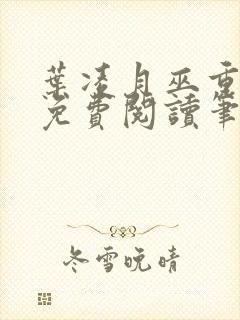 葉凌月巫重
免費閱讀筆
冬雪晚晴